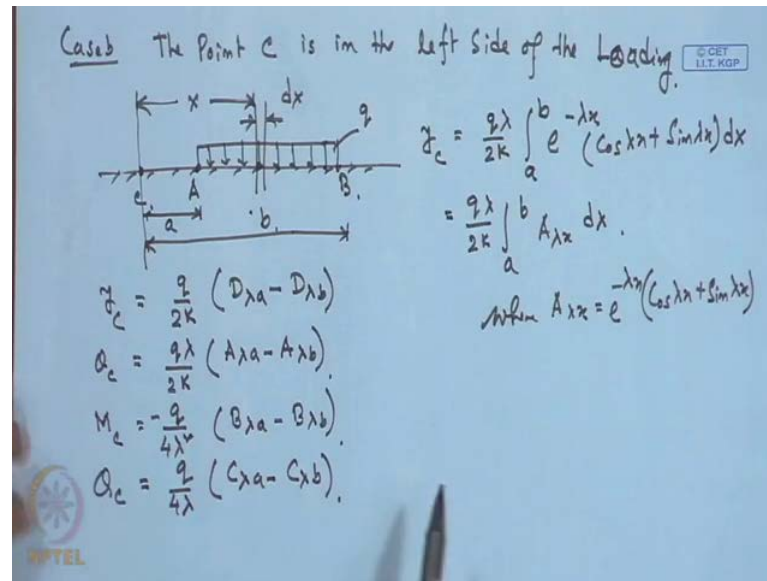 Case b The Point C is in the left Side of the Loading.
© CET
I.I.T. KGP
x dx q
C A B.
a b
y_c = qλ/2K ∫_a^b e^{-λx} (Cos λx + Sin λx) dx
= qλ/2K ∫_a^b A_{λx} dx.
where A_{λx} = e^{-λx} (Cos λx + Sin λx)
y_c = q/2K (D_{λa} - D_{λb})
Q_c = qλ/2K (A_{λa} - A_{λb}).
M_c = -q/4λ² (B_{λa} - B_{λb}).
Q_c = q/4λ (C_{λa} - C_{λb}).
NPTEL